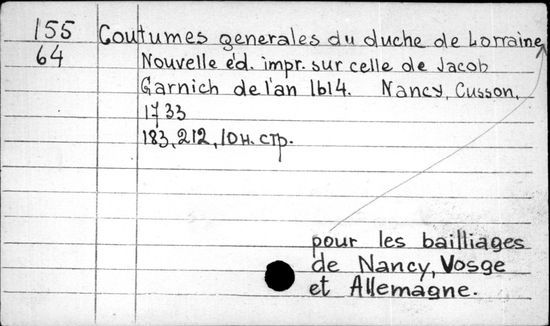 155 Coutumes generales du duche de Lorraine
64 Nouvelle éd. impr. sur celle de Jacob
Garnich de l'an 1614. Nancy, Cusson,
1733
183, 212, 10 н. стр.
pour les bailliages
de Nancy, Vosge
et Allemagne.